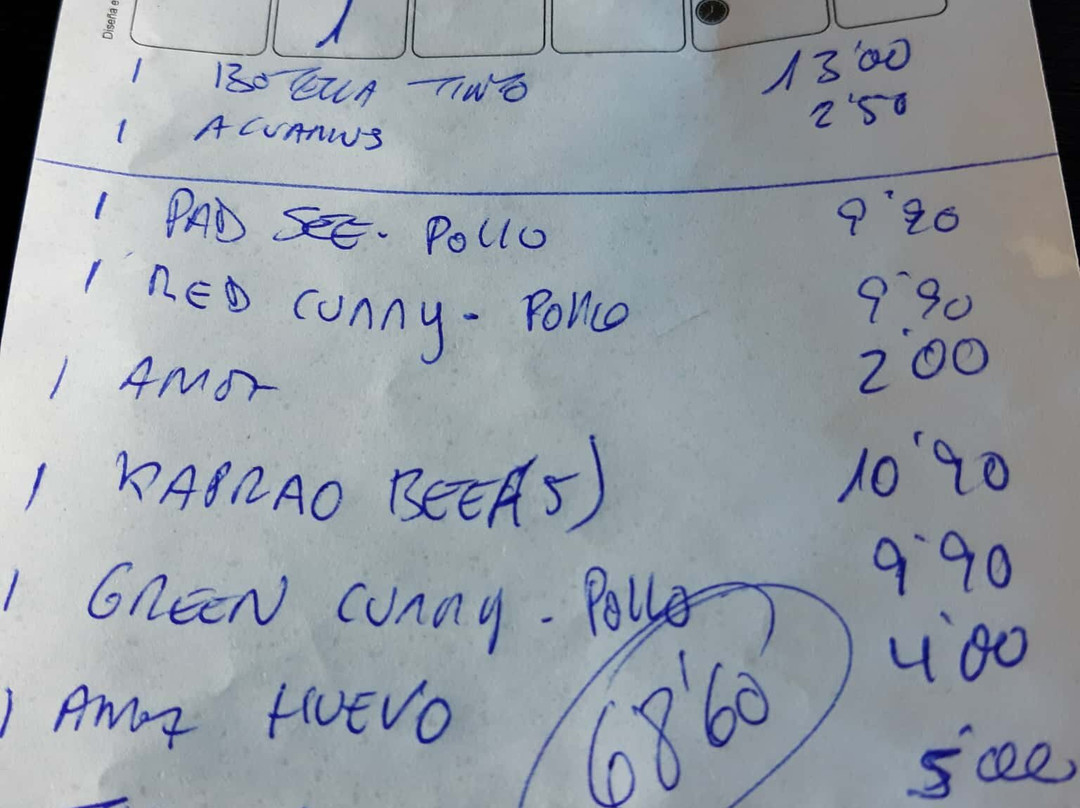 Diseña e
1
1 BOTELLA TINTO 13'00
1 ACUARIUS 2'50
1 PAD SEE - POLLO 9'90
1 RED CURRY - POLLO 9'90
1 ARROZ 2'00
1 KAPRAO BEEF (5) 10'90
1 GREEN CURRY - POLLO 9'90
1 ARROZ HUEVO 4'00
68'60
5'00